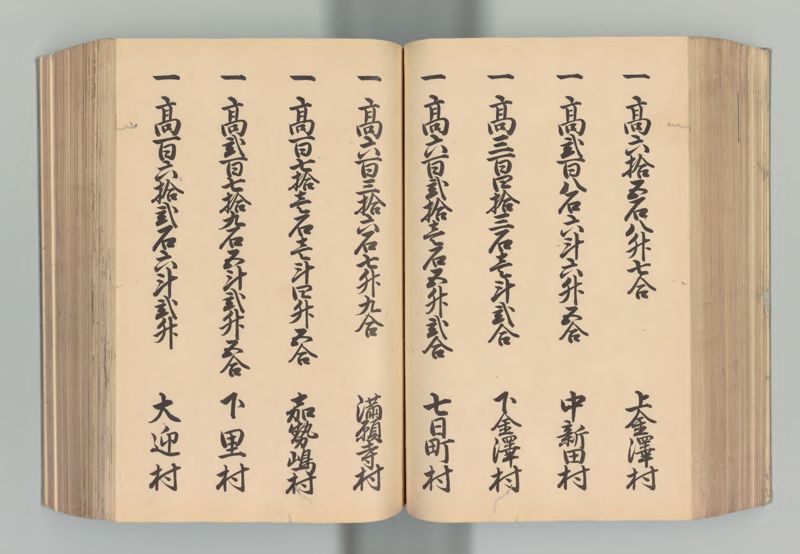 一 高六拾五石八升七合 上金澤村
一 高弐百八石六斗六升五合 中新田村
一 高三百四拾三石壱斗弐合 下金澤村
一 高六百弐拾壱石五升弐合 七日町村
一 高六百三拾六石七升九合 満願寺村
一 高百七拾壱石壱斗四升五合 嘉勢嶋村
一 高弐百七拾九石五斗弐升五合 下里村
一 高百六拾弐石六斗弐升 大迎村